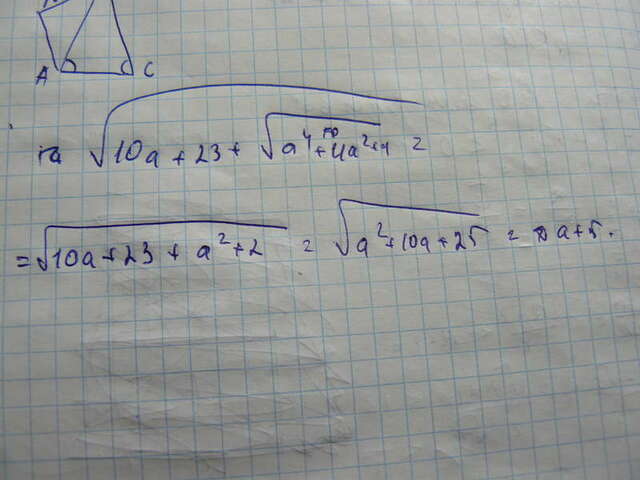 A C
√(10a + 23 + √(a⁴ + 4a² + 4)) =
= √(10a + 23 + a² + 2) = √(a² + 10a + 25) = a + 5.